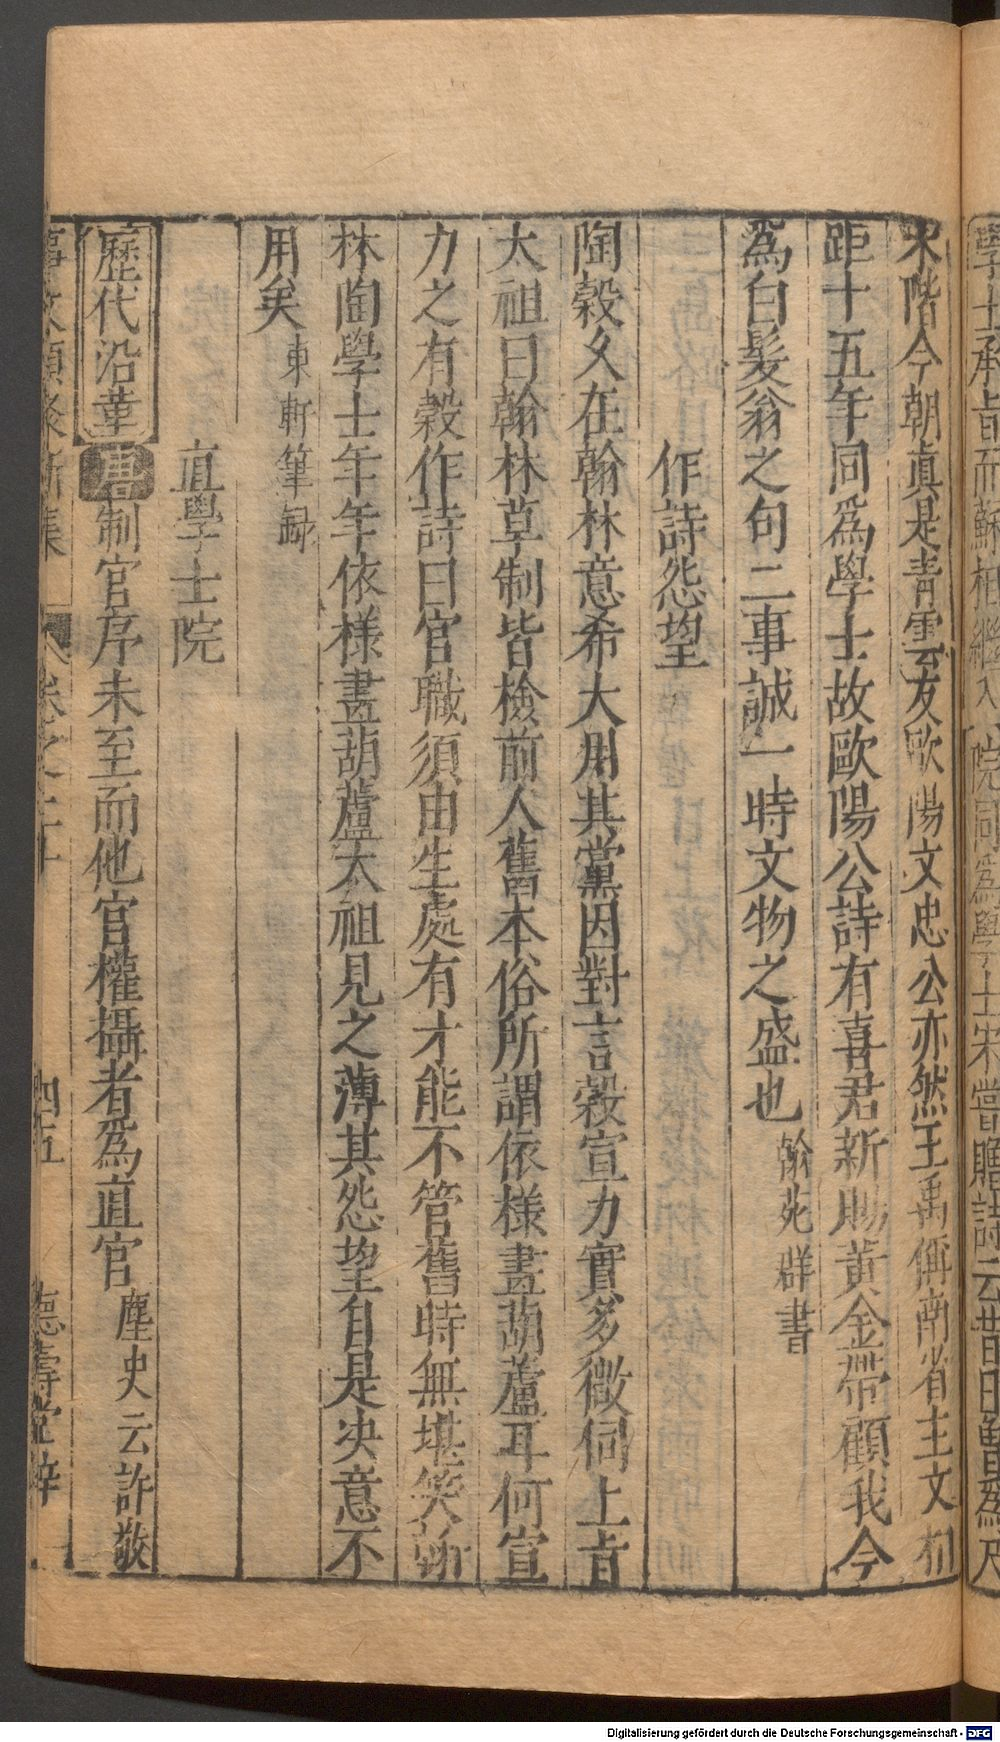 學士承旨而蘇相繼入院同爲學士宋嘗贈詩云昔日曾爲尺
宋階今朝真是青雲友歐陽文忠公亦然王禹偁南省主文相
距十五年同爲學士故歐陽公詩有喜君新賜黃金帶顧我今
爲白髮翁之句二事誠一時文物之盛也翰苑群書
作詩怨望
陶穀久在翰林意希大用其黨因對言穀宣力實多微伺上旨
太祖曰翰林草制皆檢前人舊本俗所謂依樣畫葫蘆耳何宣
力之有穀作詩曰官職須由生處有才能不管舊時無堪笑翰
林陶學士年年依樣畫葫蘆太祖見之薄其怨望自是决意不
用矣東軒筆録
直學士院
歷代沿革唐制官序未至而他官權攝者爲直官麈史云許敬
事文類聚新集 卷之二十 四五 德壽堂梓
Digitalisierung gefördert durch die Deutsche Forschungsgemeinschaft - DFG